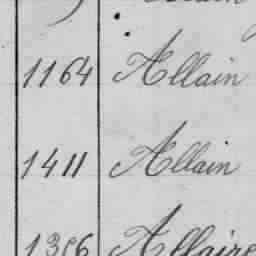 1164 Allain
1411 Allain
1356 Allaire